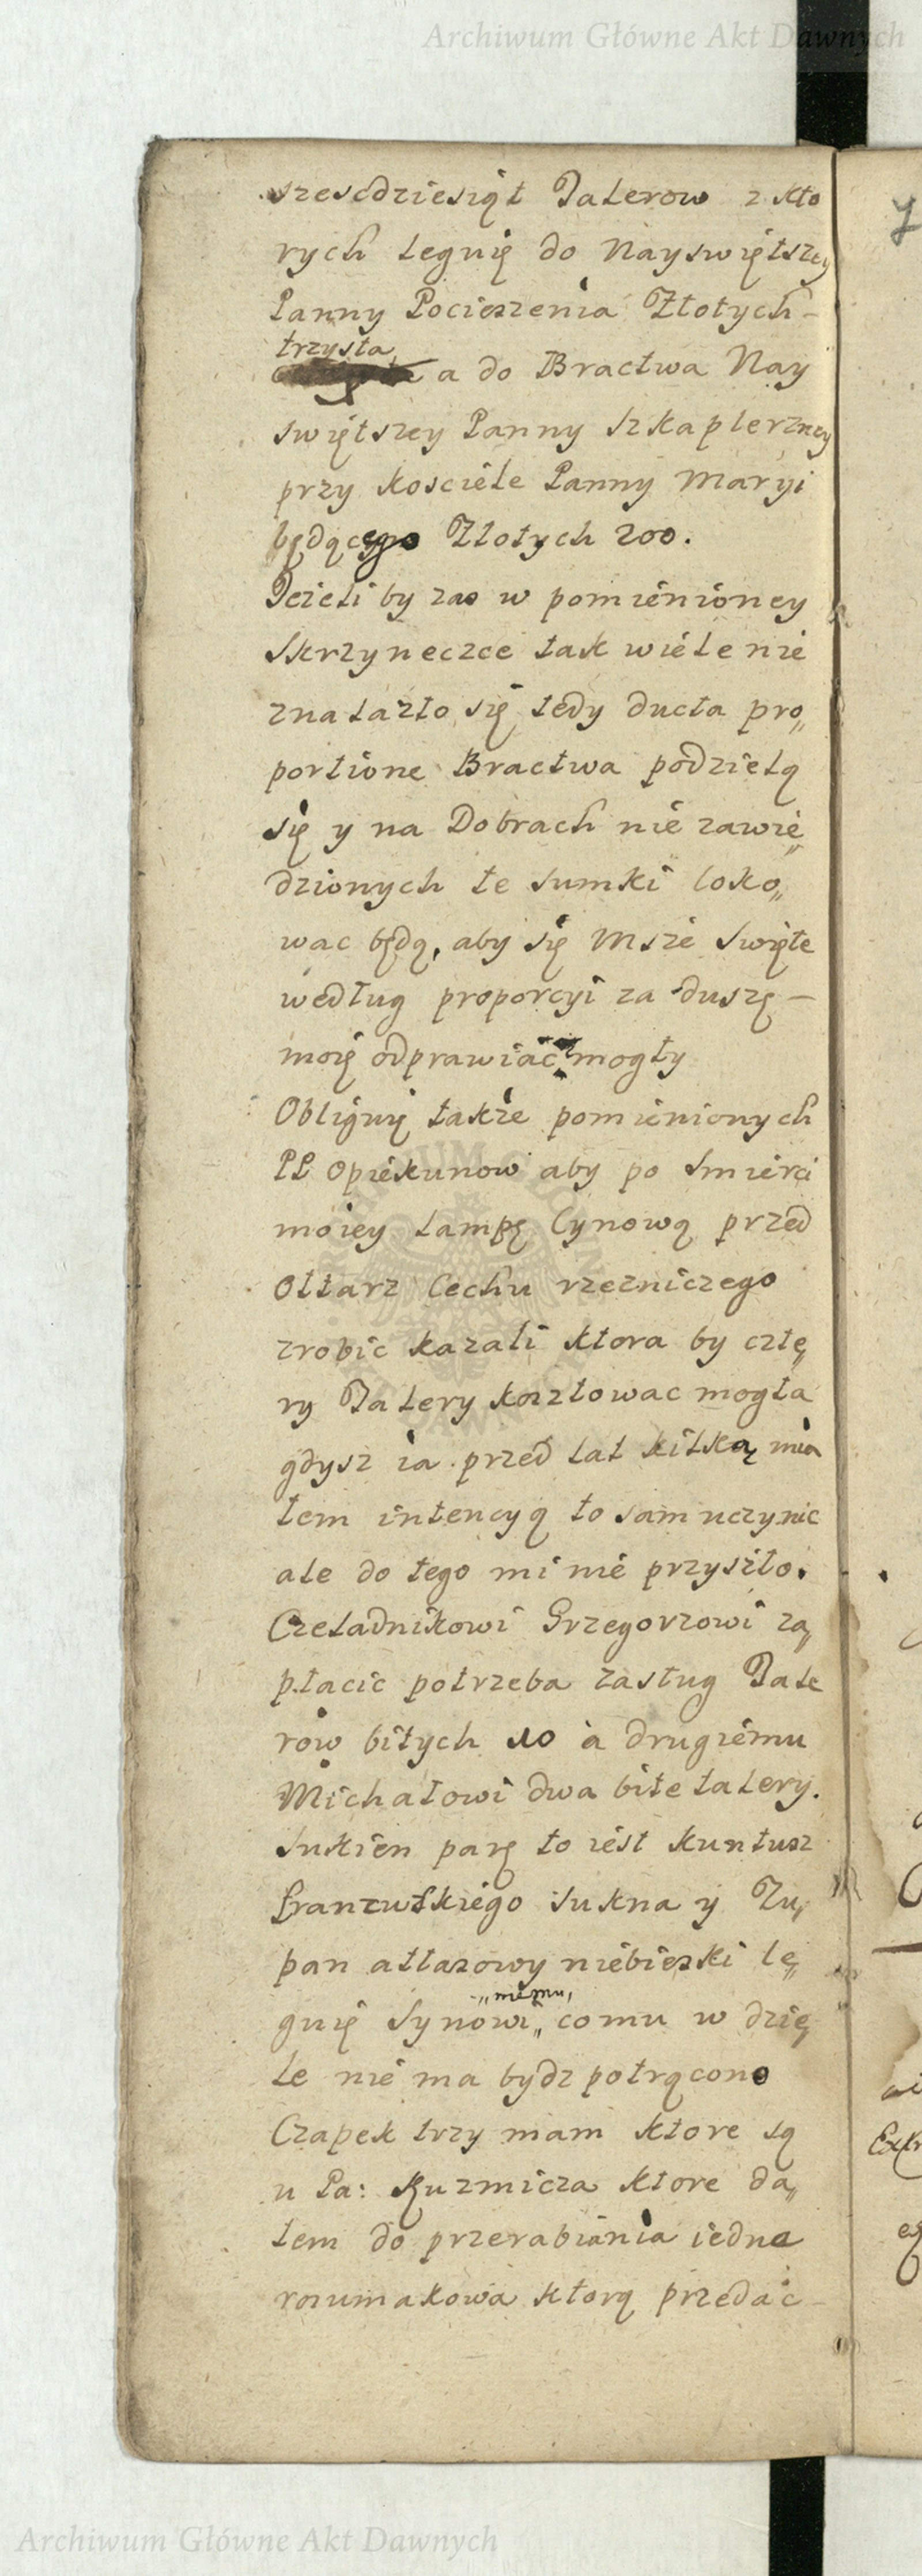 Archiwum Główne Akt Dawnych
szescdziesiąt Talerow z kto
rych legnię do Nayswiętszey
Panny Pocieszenia Złotych –
trzysta
a do Bractwa Nay
swiętszey Panny Szkaplerzney
przy kosciele Panny Maryi
będącego Złotych 200.
Jezeli by zas w pomienioney
Skrzyneczce tak wiele nie
znalazło się tedy ducta pro„
portione Bractwa podzielą
się y na Dobrach nie zawie„
dzionych te sumki loko„
wac będą, aby się Msze Swięte
według proporcyi za duszę –
moię odprawiac mogły
Obliguię takze pomienionych
PP Opiekunow aby po Smierci
moiey Lampę Cynową przed
Ołtarz Cechu rzezniczego
zrobic kazali ktora by czte„
ry Talery kosztowac mogła
gdysz ia przed lat kilką mia
łem intencyą to sam uczynic
ale do tego mi nie przyszło.
Czeladnikowi Grzegorzowi za„
płacic potrzeba zasług Tale
row bitych 10 a drugiemu
Michałowi dwa bite talery.
Sukien parę to iest kuntusz
francuskiego sukna y Zu„
pan atłasowy niebieski le„
„memu„
guię Synowi„ comu w dzie„
le nie ma bydz potrącono
Czapek trzy mam ktore są
u Pa: Kuzmicza ktore da„
łem do przerabiania iedna
rosumakowa ktorą przedac –
Archiwum Główne Akt Dawnych